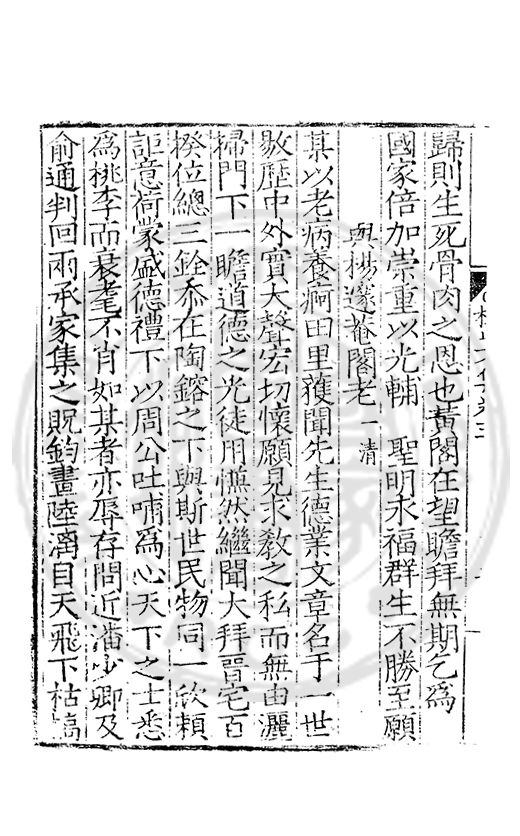 歸則生死骨肉之恩也黃閣在望瞻拜無期乞爲
國家倍加崇重以光輔　聖明永福群生不勝至願
與楊邃菴閣老一清
某以老病養痾田里獲聞先生德業文章名于一世
敭歷中外實大聲宏切懷願見求教之私而無由灑
掃門下一瞻道德之光徒用憮然繼聞大拜晉宅百
揆位總三銓忝在陶鎔之下與斯世民物同一欣賴
詎意荷蒙盛德禮下以周公吐哺爲心天下之士悉
爲桃李而衰耄不肖如某者亦辱存問近潘少卿及
俞通判回兩承家集之貺鈞畫陸濟自天飛下枯槁